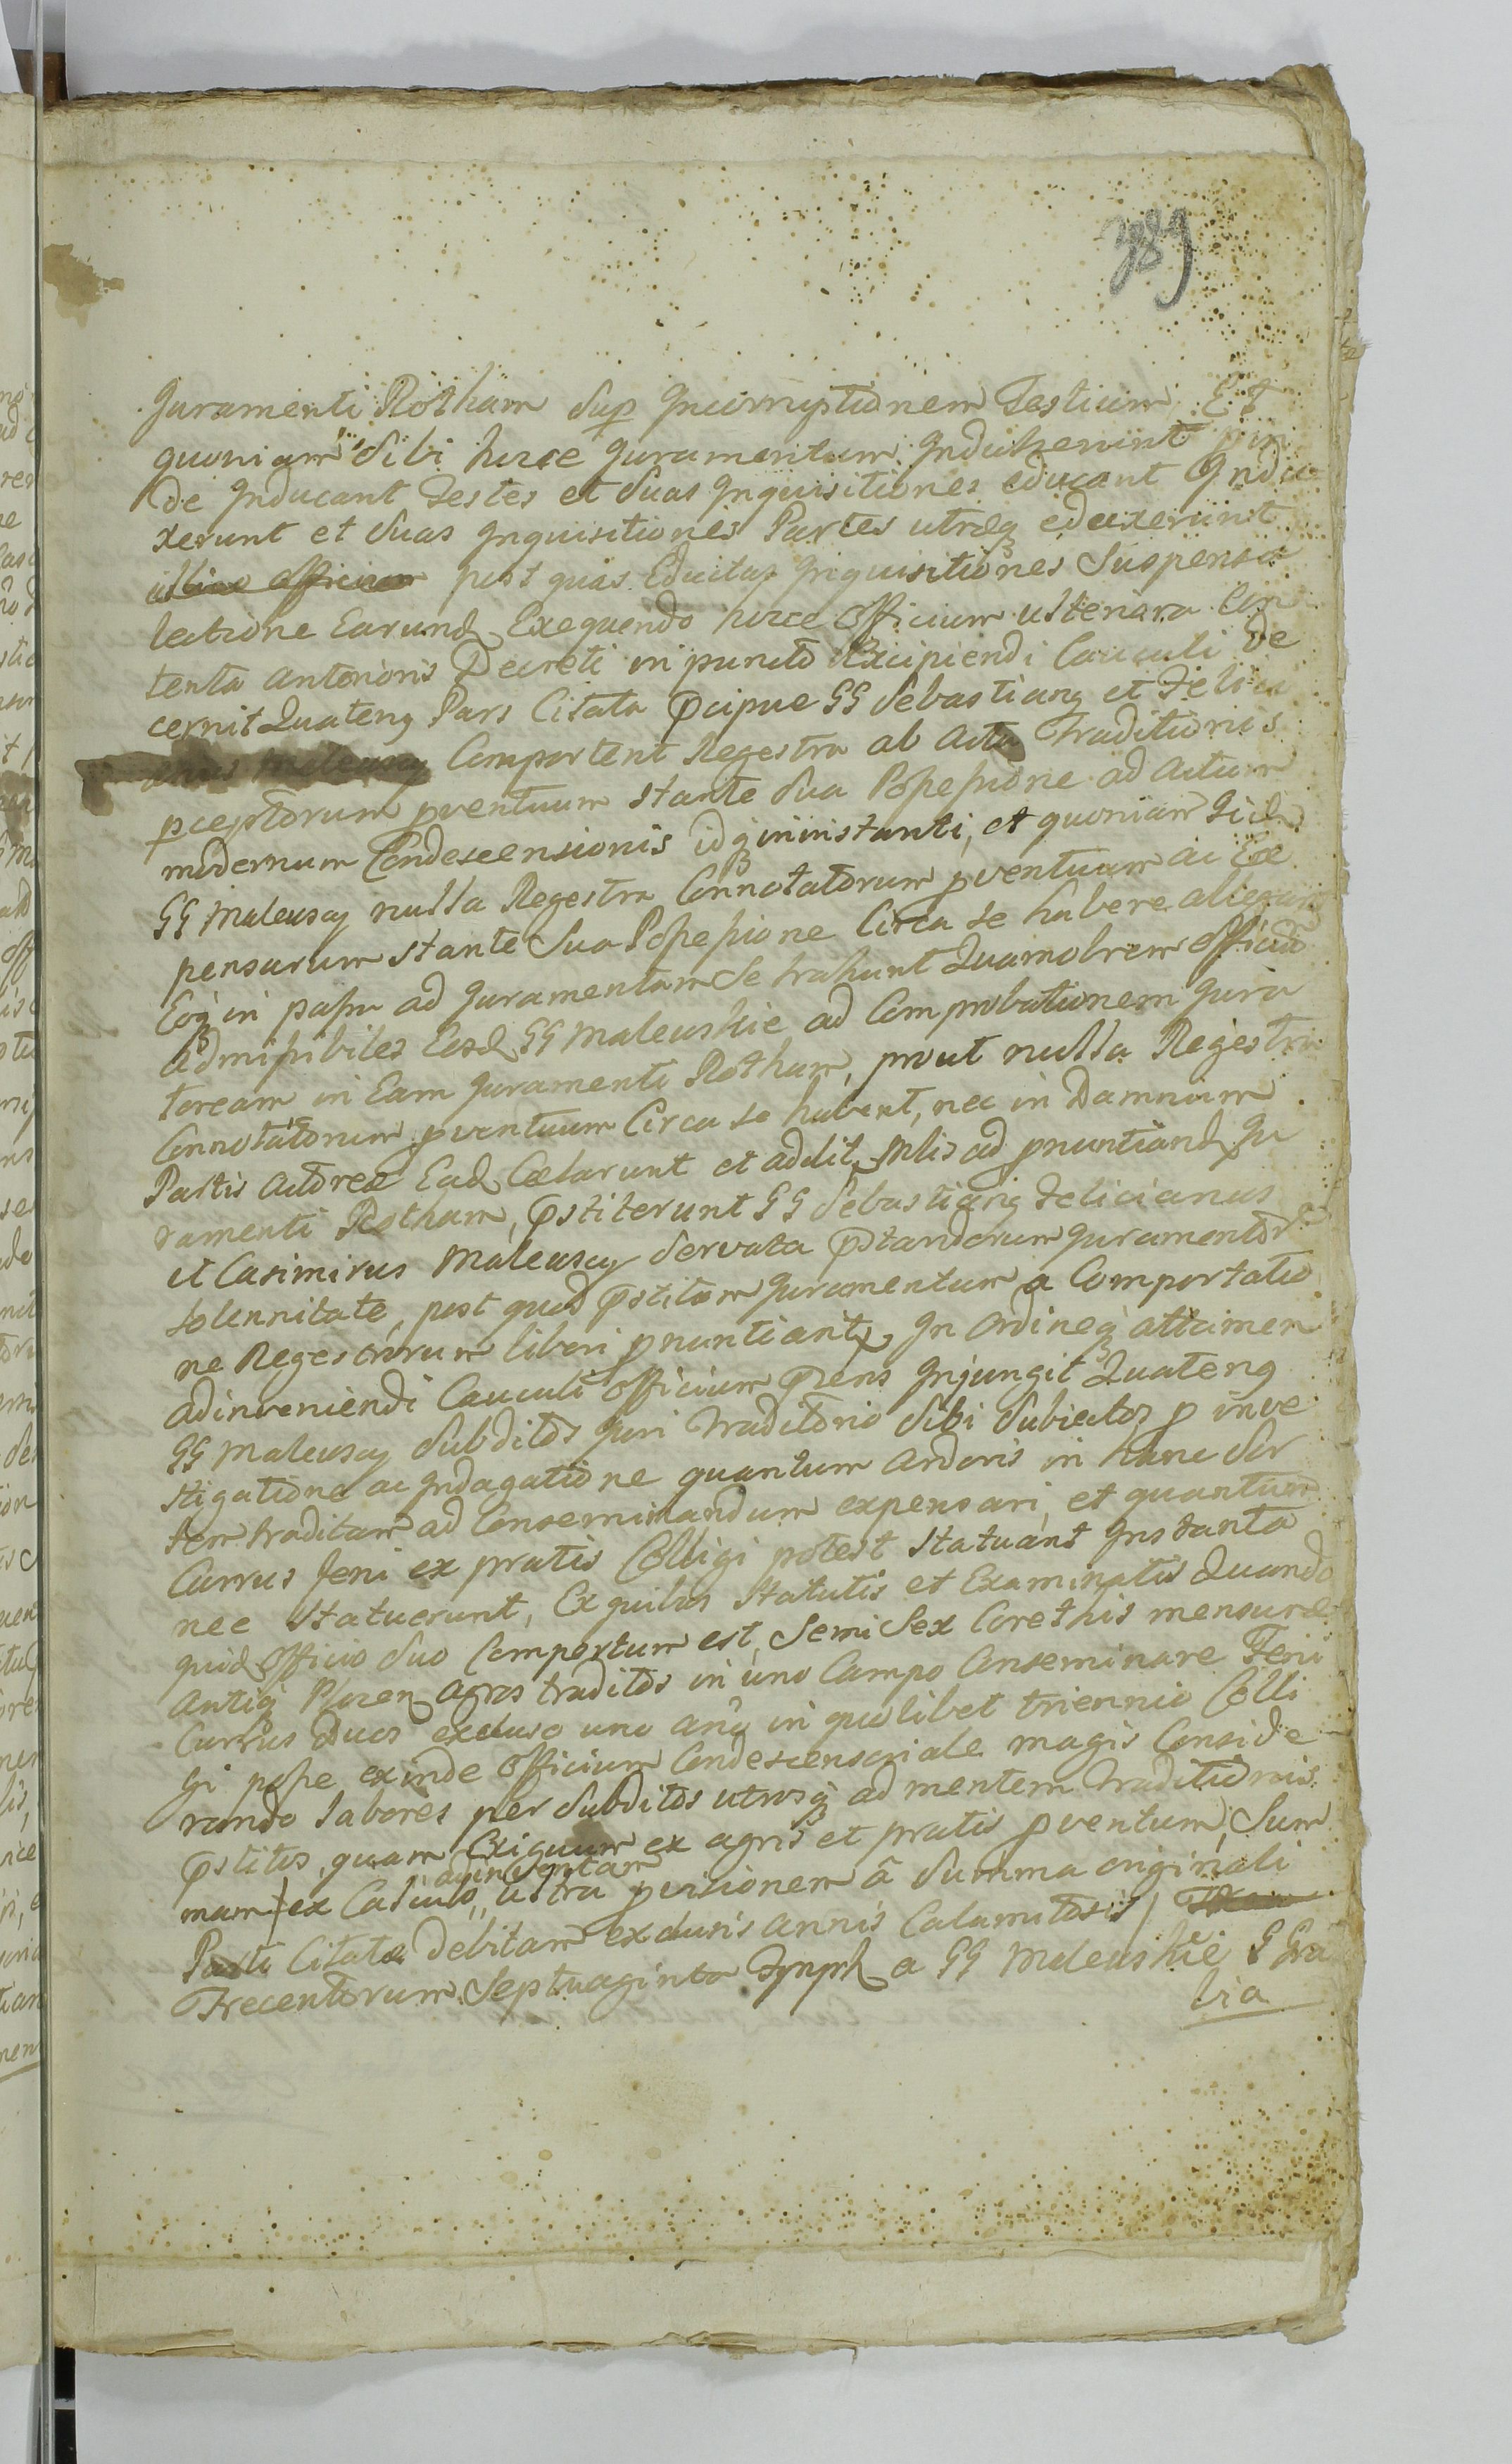 389
Juramenti Rotham sup Incorruptionem Testium, Et
quoniam sibi hucce Juramentum Indulserunt
de Inducant Testes et suas Inquisitiones educant Indu
xerunt et suas Inquisitiones Partes utræq eduxerunt
post quas Eductas Inquisitiones Suspensa
lectione Earund Exequendo hucce Officium ulteriora Con
tenta anterioris Decreti in puncto Excipiendi Calculi De
cernit Quateng Pars Citata pcipue GG Sebastiang et Felici
Comportent Regestra ab Acta Traditionis
pceptorum pventuum stante sua Possessione ad actum
modernum Condescensionis idq in instanti, et quoniam Iid
GG Maleuscy nulla Regestra Connotatorum pventuum ac Ex
pensarum stante sua Possessione Circa se habere allegant
Eoq in passu ad Juramentum se trahunt Quamobrem Officiu
admissibiles Eosd GG Maleuskie ad Comprobationem Jura
toream in Eam Juramenti Rotham, prout nulla Regestra
Connotatorum pventuum Circa se habent, nec in Damnum
Partis Actoreæ Ead Cælarunt et addit Mlis ad pnuntiand Ju
ramenti Rotham, pstiterunt GG Sebastiang Felicianus
et Casimirus Maleuscy servata pstandorum Juramentor
solennitate, post quod pstitum Juramentum a Comportatio
ne Regestrorum liberi pnuntiant, In Ordineq attamen
adinveniendi Calculi Officium pens Injungit Quateng
GG Maleuscy Subditos Juri Traditorio sibi Subiectos p inve
stigatione ac Indagatione quantum Ardoris in hanc Sor
tem traditam ad Conseminandum expensari, et quantum
Currus feni ex pratis Colligi potest Statuant Instanta
nee Statuerunt, Ex quibus Statutis et Examinatis Quando
quid Officio suo Compertum est, Semi Sex Corethis mensuræ
Antiq Plocen agros traditos in uno Campo Conseminare Feni
Currus Duos excluso uno anõ in quolibet triennio Colli
gi posse, exinde Officium Condescensoriale magis Conside
rando labores per Subditos utrosq ad mentem Traditionis
pstitos, quam Exiguum ex agris et pratis pventum, Sum
adinventam
mam ex Calculo ultra pvisionem â Summa originali
Parti Citatæ debitam exclusis annis Calamitosis
Trecentorum Septuaginta Tynph a GG Maleuskie G Gra
bia